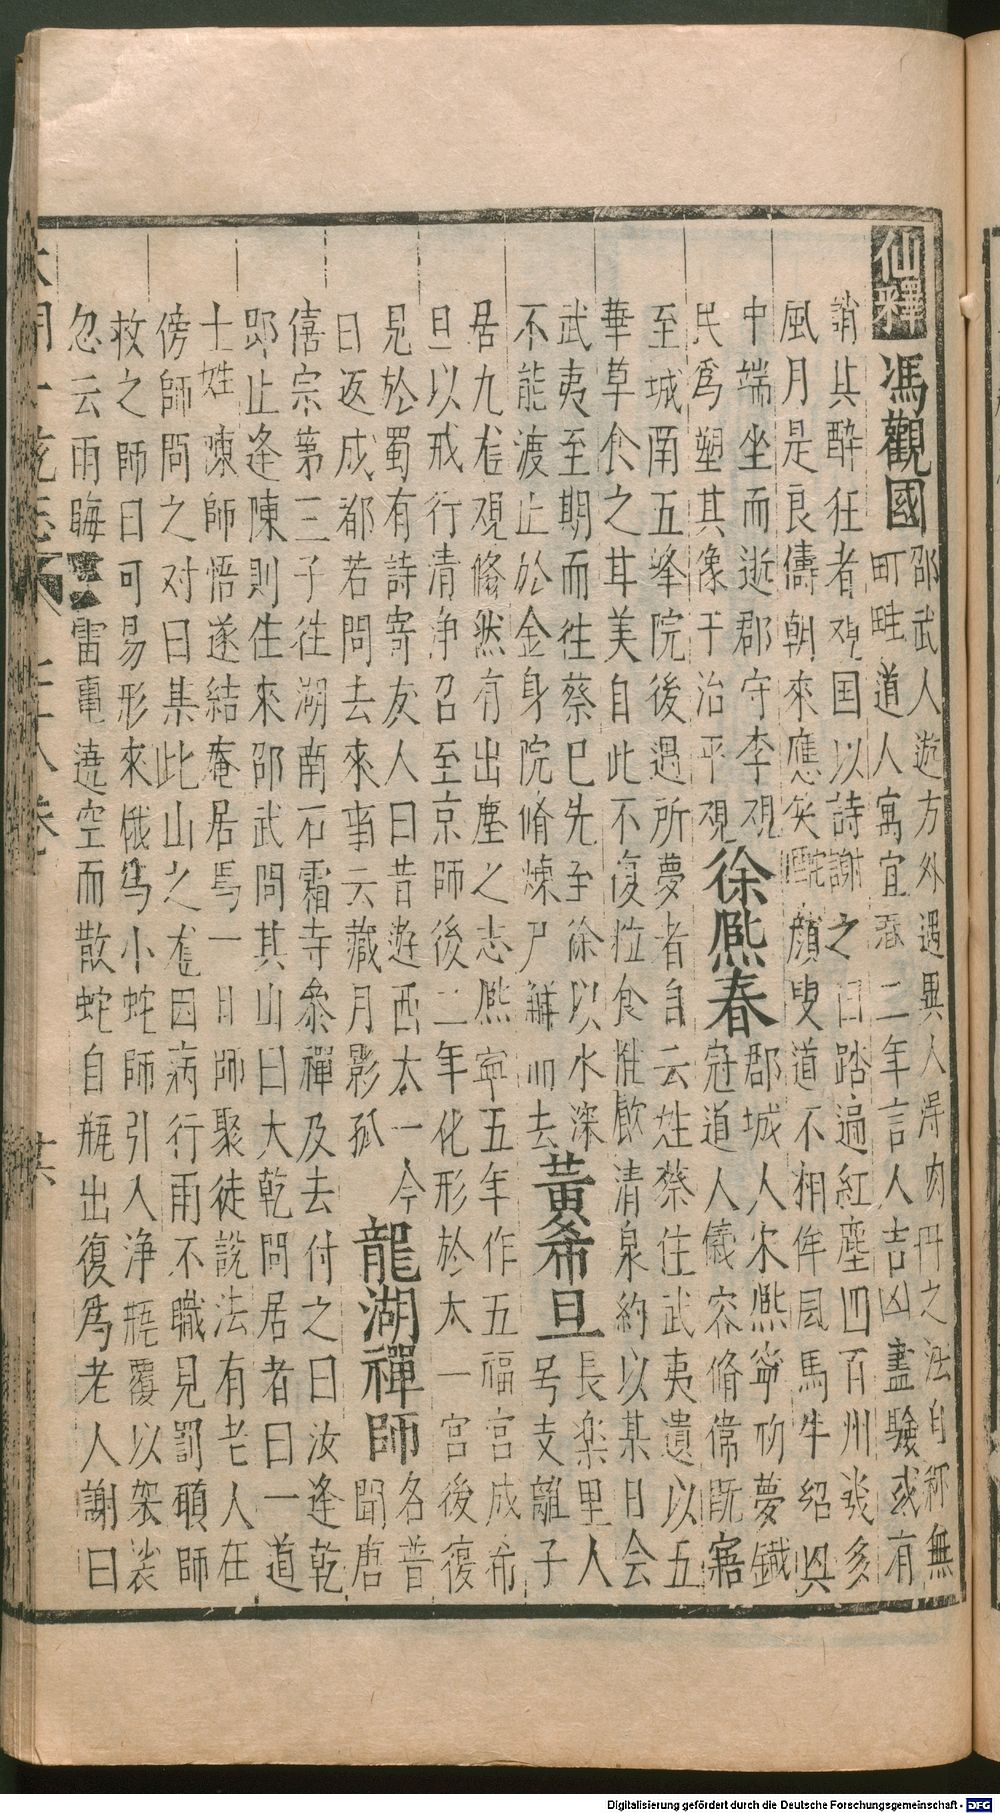 仙釋
馮觀國
邵武人遊方外遇異人得内丹之法自称無
町畦道人寓宜春二年言人吉凶盡驗或有
誚其酔狂者观国以詩謝之曰踏遍紅塵四百州㡬多
風月是良儔朝來應笑酡顔叟道不相侔風馬牛紹興
中端坐而逝郡守李观
民爲塑其像于治平观
徐熈春
郡城人宋熈寧初夢鐵
冠道人儀容脩偉既寤
至城南五峯院後過所夢者自云姓蔡住武夷遺以五
華草食之甘美自此不復粒食惟飲清泉約以某日会
武夷至期而往蔡巳先至徐以水深
不能渡止於金身院脩煉尸解而去
黄希旦
長楽里人
号支離子
居九龙观翛然有出塵之志熈寧五年作五福宫成希
旦以戒行清净召至京師後二年化形於太一宫後復
見於蜀有詩寄友人曰昔遊西太一今
日返成都若問去來事云藏月影孤
龍湖禪師
名普
聞唐
僖宗第三子往湖南石霜寺叅禪及去付之曰汝逢乾
即止逢陳則住來邵武問其山曰大乾問居者曰一道
士姓陳師悟遂結庵居焉一日師聚徒説法有老人在
傍師問之对曰某此山之龙因病行雨不職見罰願師
救之師曰可易形來俄为小蛇師引入净瓶覆以袈裟
忽云雨晦冥雷電遶空而散蛇自瓶出復爲老人謝曰
Digitalisierung gefördert durch die Deutsche Forschungsgemeinschaft - DFG